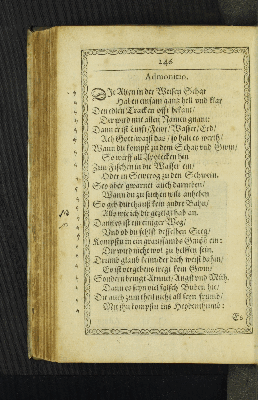 246
Admonitio.
Die Alten in der Weisen Schar
Haben einsam gantz hell und klar
Den edlen Tracken offt bekant/
Der wird mit allen Namen gnant:
Dann er ist Lufft/Fewr/Wasser/Erd/
Ach Gott weiß das/ so hats es werth/
Wann du kompst zu dem Schatz und Gwin/
So werff all hin
Zun Fischen in die Wasser ein/
Oder in Sewtrog zu den Schwein.
Sey aber gwarnet auch darneben/
Wann du zu suchen wilt anheben
So geh durchauß kein ander Bahn/
Allß wie ich dir gezeigt hab an.
Dann es ist ein einiger Weg/
Und ob du fehlst desselben Steg/
Kompstu in ein grausambs Gmöß ein:
Dir wird nicht wol zu helffen sein.
Drumb glaub keim der dich weist dahin/
Es ist vergebens wegt kein Gwin/
Sondern bringt Armut/ Angst und Müh.
Dann es seyn viel falsch Buben hie/
Die auch zum theil nicht all seyn frumb/
Mit ihn kompstu ins
Es